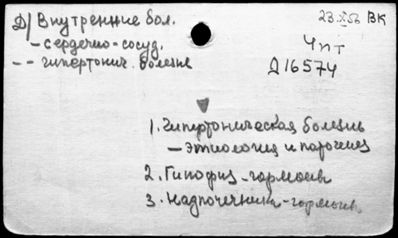 Д/ Внутренние бол.
23 X 53 ВК
- сердечно-сосуд.
-- гипертонич. болезнь
Чпт
Д16574
1. Гипертоническая болезнь
- этиология и патогенез
2. Гипофиз - гормоны
3. Надпочечники - гормоны